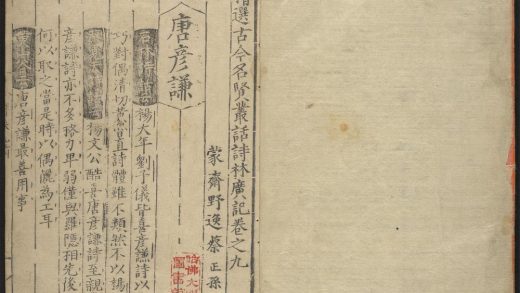 選古今名賢叢話詩林廣記卷之九
蒙齋野逸蔡正孫
唐彥謙
石林詩話云楊大年劉子儀皆喜彥謙詩以
巧對偶清切黃魯直詩體雖不類然不以楊
楊文公酷喜唐彥謙詩至親
彥謙詩亦不多格力卑弱僅與羅隱相先後
何以取之當是時以偶儷為工耳
唐彥謙最善用事
哈佛大
圖書